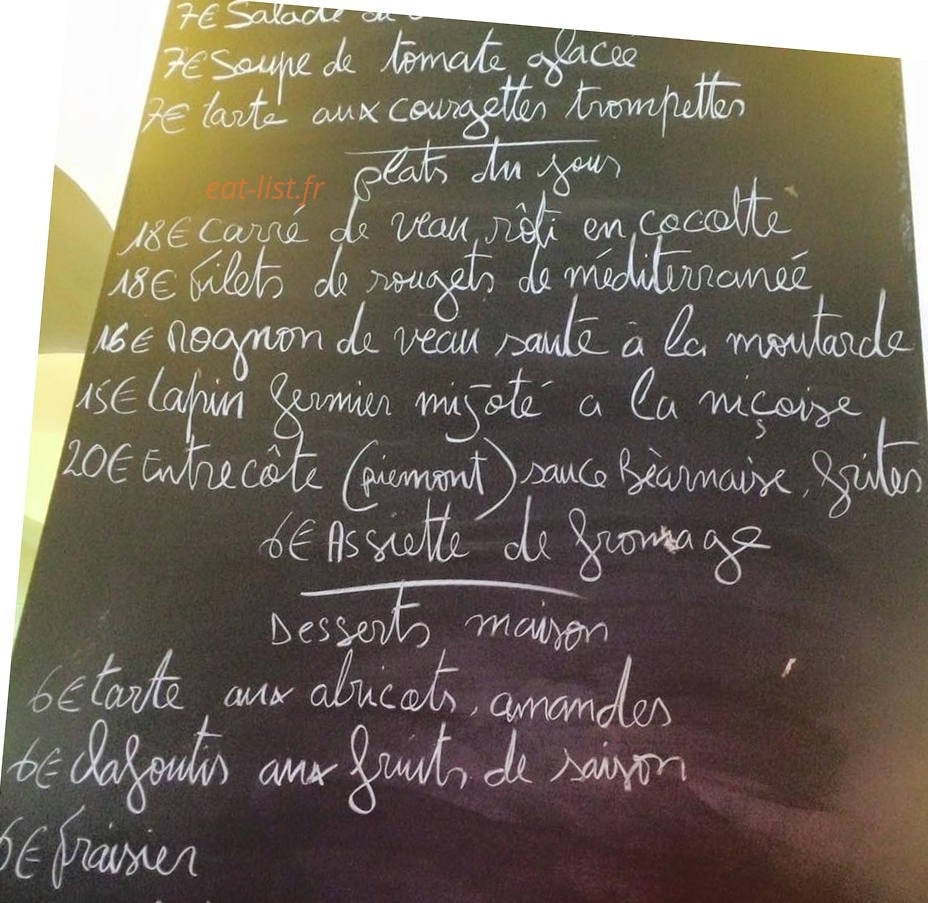 7€ Salade
7€ Soupe de tomate glacée
7€ tarte aux courgettes trompettes
plats du jour
eat-list.fr
18€ carré de veau rôti en cocotte
18€ filets de rougets de méditerranée
16€ Rognon de veau sauté à la moutarde
15€ lapin fermier mijoté a la niçoise
20€ Entrecôte (piemont) sauce Béarnaise, frites
6€ Assiette de fromage
Desserts maison
6€ tarte aux abricots, amandes
6€ clafoutis aux fruits de saison
6€ fraisier